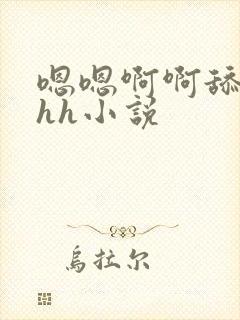 嗯嗯啊啊舔
hh小说
乌拉尔